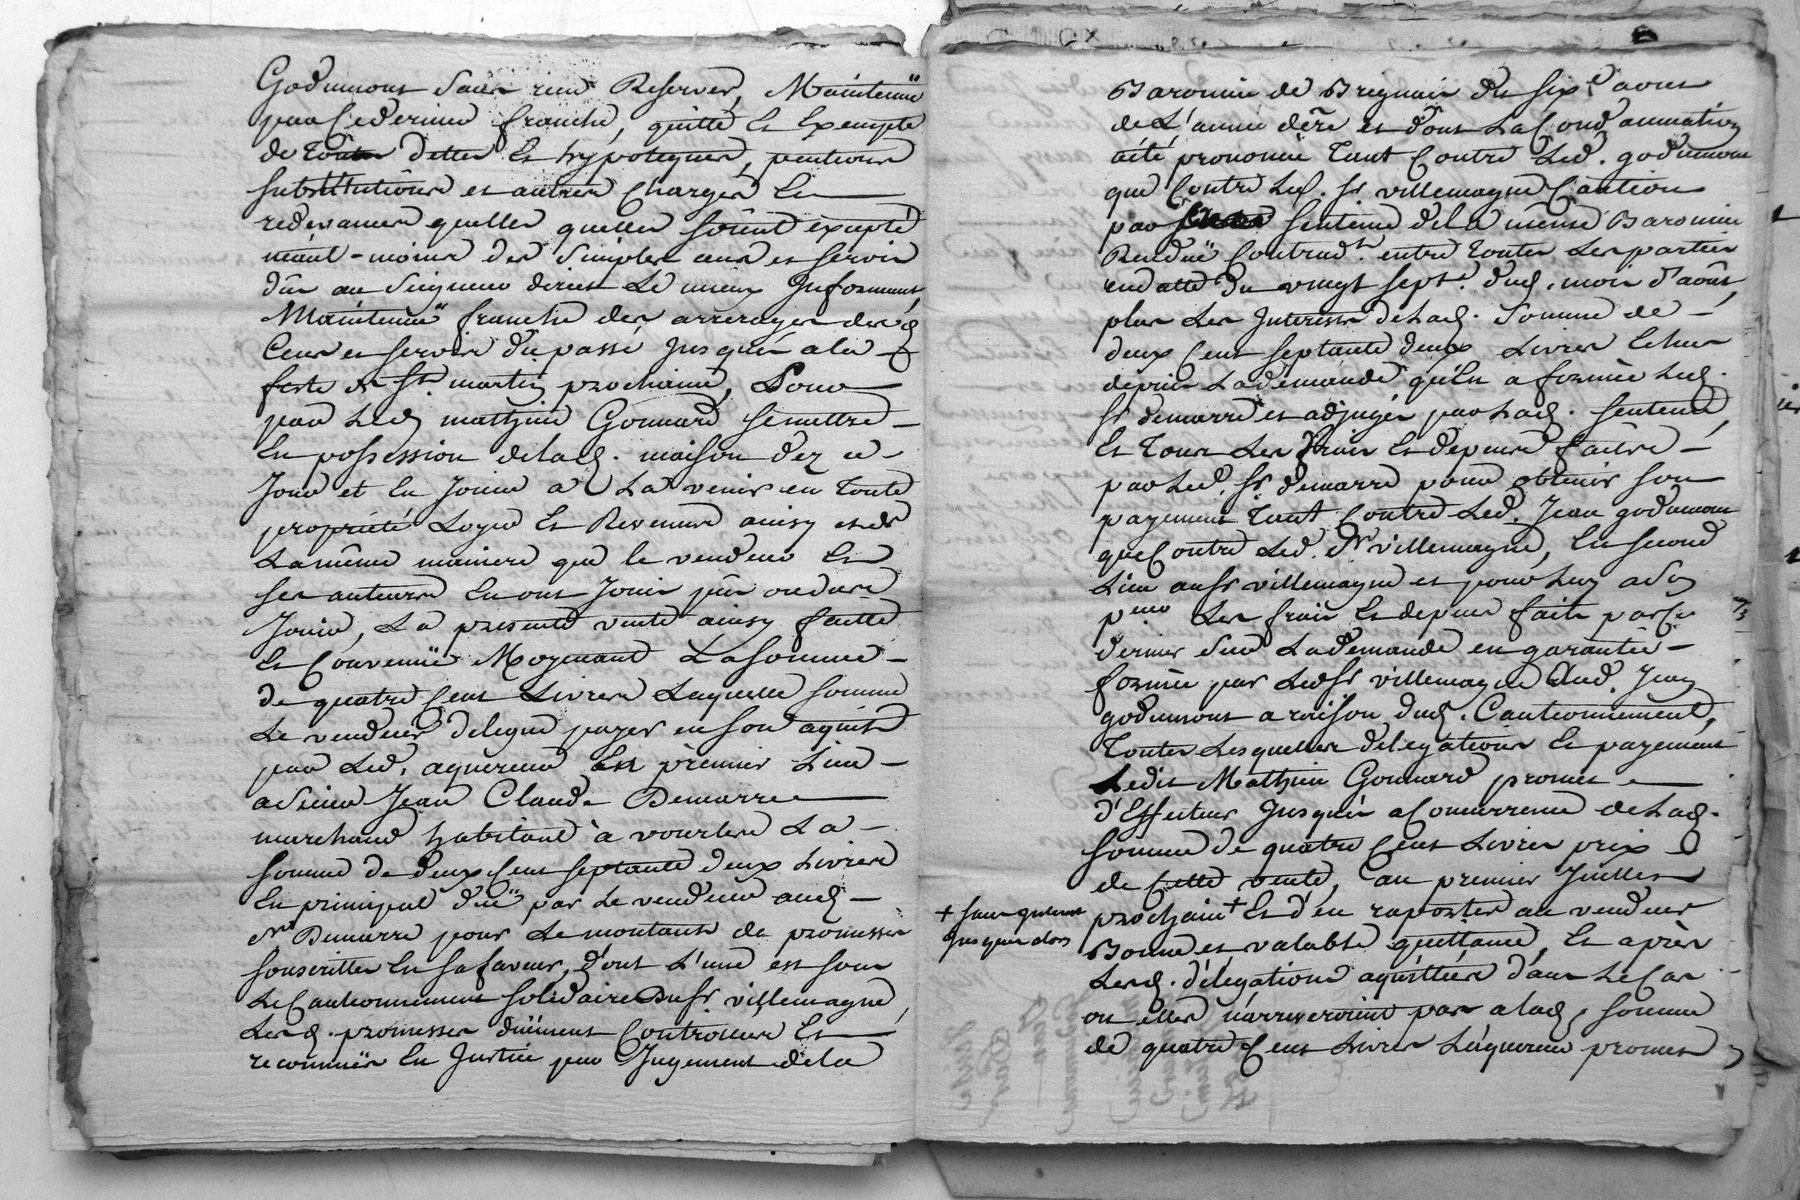 Godumont sans rien Reserver, Maintenüe
par ce dernier franche, quitte et Exempte
de toutes dettes et hypoteques, pentions
substitutions et autres Charges et
redevances quelles quelles soient excepté
néant-moins des simples cens et servis
dûs au Seigneur direct le mieux Informant,
Maintenüe franche des arrerages desd
Cens et servis du passé Jusqués a la
feste de St. martin prochaine, Pour
par Led mathieu Gonnard se mettre
En possession delad. maison dez ce
Jour et En Jouir a L'avenir en toute
propriété Loyer et Revenus ainsy et de
La même maniere que le vendeur Et
ses auteurs En ont Joui pû ou dus
Jouir, La presente vente ainsy faitte
Et Convenüe Moyenant La somme
de quatre Cent Livres Laquelle somme
Le vendeur delegue payer en son aquit
par Led. aquereur En premier Lieu
a sieur Jean Claude Demarre
marchand habitant à vourles La
somme de deux Cent septante deux Livres
En principal düe par Le vendeur aud
Sr Demarre pour Le montant de promesses
souscrittes En sa faveur, d'ont L'une est sous
Le Cautionnement solidaire du Sr villemagne,
Lesd. promesses düement Controllées Et
reconnües En Justice par Jugement de la
Baronnie de Brignais du six aout
de L'année dere et d'ont La Condamnation
a été prononcée Tant Contre Led. godumont
que Contre Led. Sr villemagne Caution
par sentence de la même Baronnie
Rendüe Contradt. entre toutes Les parties
en datte du vingt sept. dud. mois d'août,
plus Les Interests de Lad. Somme de
deux Cent septante deux Livres Echus
depuis La demande qu'En a formée Led.
Sr demarre et adjugés par Lad. sentence,
Et tous Les frais Et depens faits
par Led. Sr demarre pour obtenir son
payement tant Contre Led. Jean godumont
que Contre Led. Sr villemagne, En second
Lieu au Sr villemagne et pour Luy a son
Les frais Et depens faits par Ce
dernier sur La demande en garantie
formée par Led Sr villemagne aud. Jean
godumont a raison dud. Cautionnement,
Toutes Lesquelles delegations et payement
Ledit Mathieu Gonnard promet
d'Effectuer Jusqués a Concurrence de Lad.
somme de quatre Cent Livres prix
de Cette vente, au premier Juillet
+ sans interest
Jusques alors
prochain + Et d'en raporter au vendeur
Bonne et valable quittance, Et après
Lesd. délegations aquittées dans Le Cas
ou elles n'arriveroient pas a lad. somme
de quatre Cent Livres L'aquereur promet